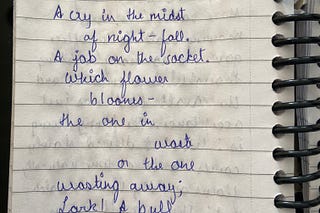 A cry in the midst
of night-fall.
A job on the socket.
Which flower
blooms -
the one in
waste
or the one
wasting away;
Lark! A bull